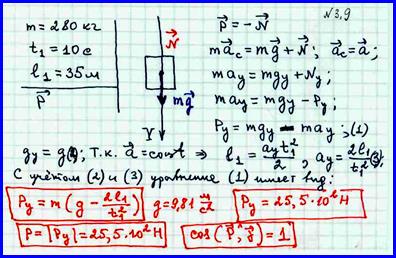 N 3,9
m = 280 кг
t₁ = 10 с
l₁ = 35 м
P⃗
N⃗
mg⃗
Y
P⃗ = -N⃗
ma⃗c = mg⃗ + N⃗; a⃗c = a⃗;
may = mgy + Ny;
may = mgy - Py;
Py = mgy - may; (1)
gy = g(2); т.к. a⃗ = const ⇒ l₁ = ayt₁²/2, ay = 2l₁/t₁² (3);
С учётом (2) и (3) уравнение (1) имеет вид:
Py = m(g - 2l₁/t₁²) g = 9,81 м/с² Py = 25,5·10² Н
P = |Py| = 25,5·10² Н cos(P⃗,^g⃗) = 1